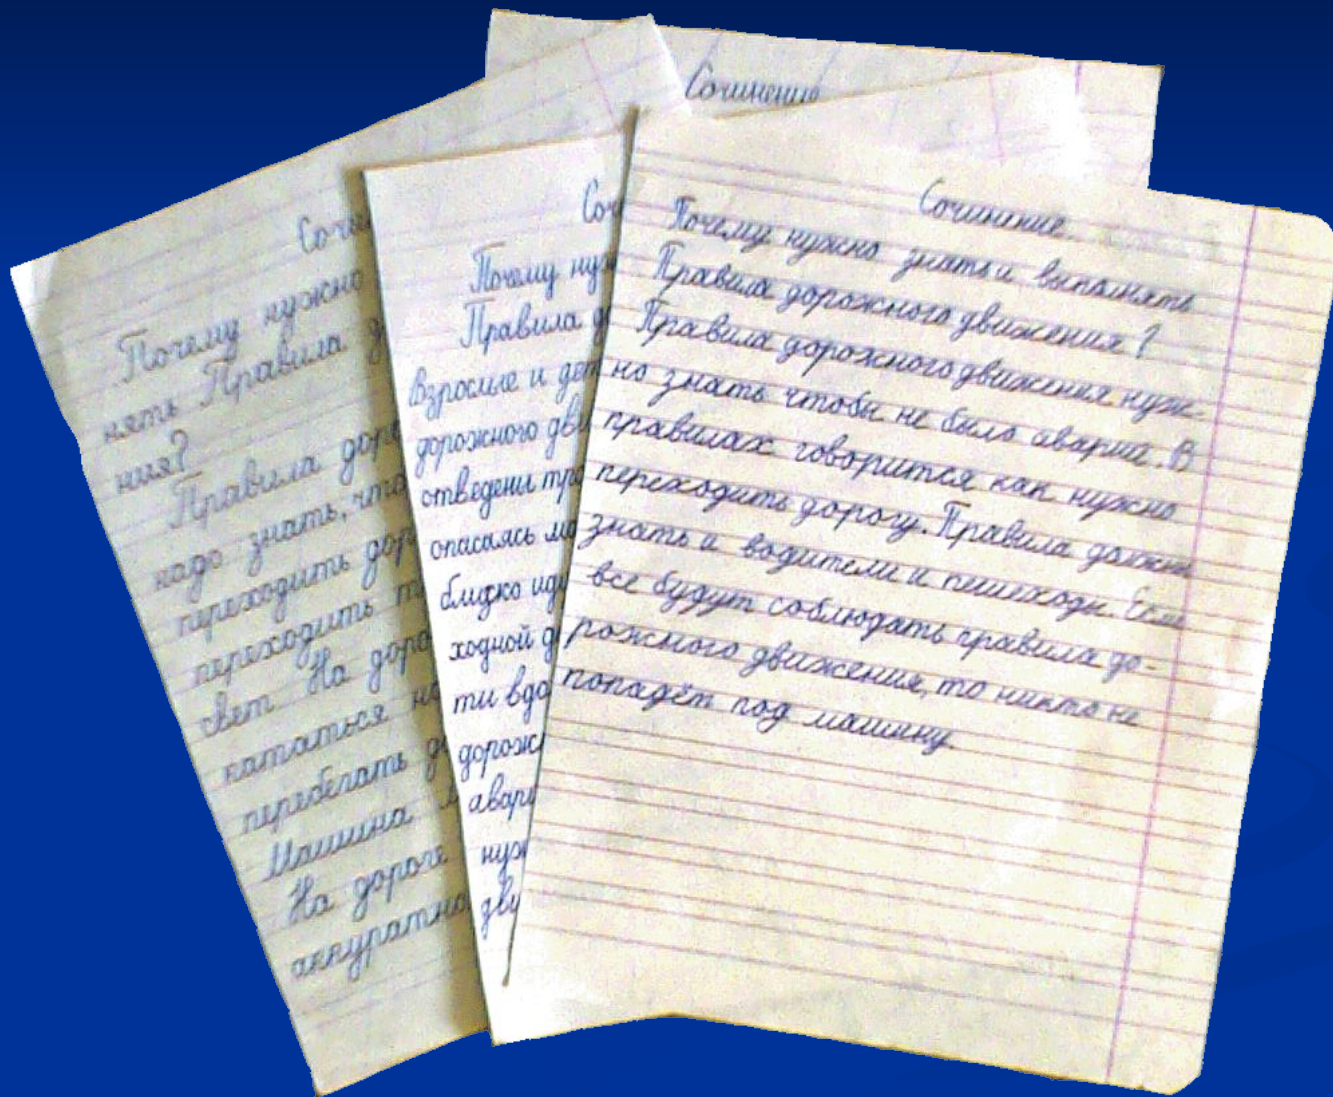 Сочинение
Сочин
Почему нужно
нять Правила д
ния?
Правила доро
надо знать, что
переходить дор
переходить
свет На доро
кататься на
перебегать д
Машина
На дороге
аккуратно
Соч
Почему нуж
Правила до
взрослые и дет
дорожного дви
отведены тро
опасаясь ма
близко иду
ходной д
ти вдо
дорожн
авари
нуж
дву
Сочинение.
Почему нужно знать и выполнять
Правила дорожного движения?
Правила дорожного движения нуж-
но знать чтобы не было аварии. В
правилах говорится как нужно
переходить дорогу. Правила должны
знать и водители и пешеходы. Если
все будут соблюдать правила до-
рожного движения, то никто не
попадёт под машину.